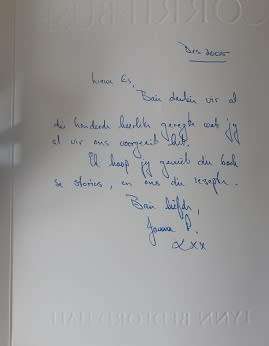 Des 2005
Liewe Es,
Baie dankie vir al
die honderde heerlike geregte wat jy
al vir ons voorgesit het.
Ek hoop jy geniet die boek
se stories, en ons die resepte.
Baie liefde,
xxx